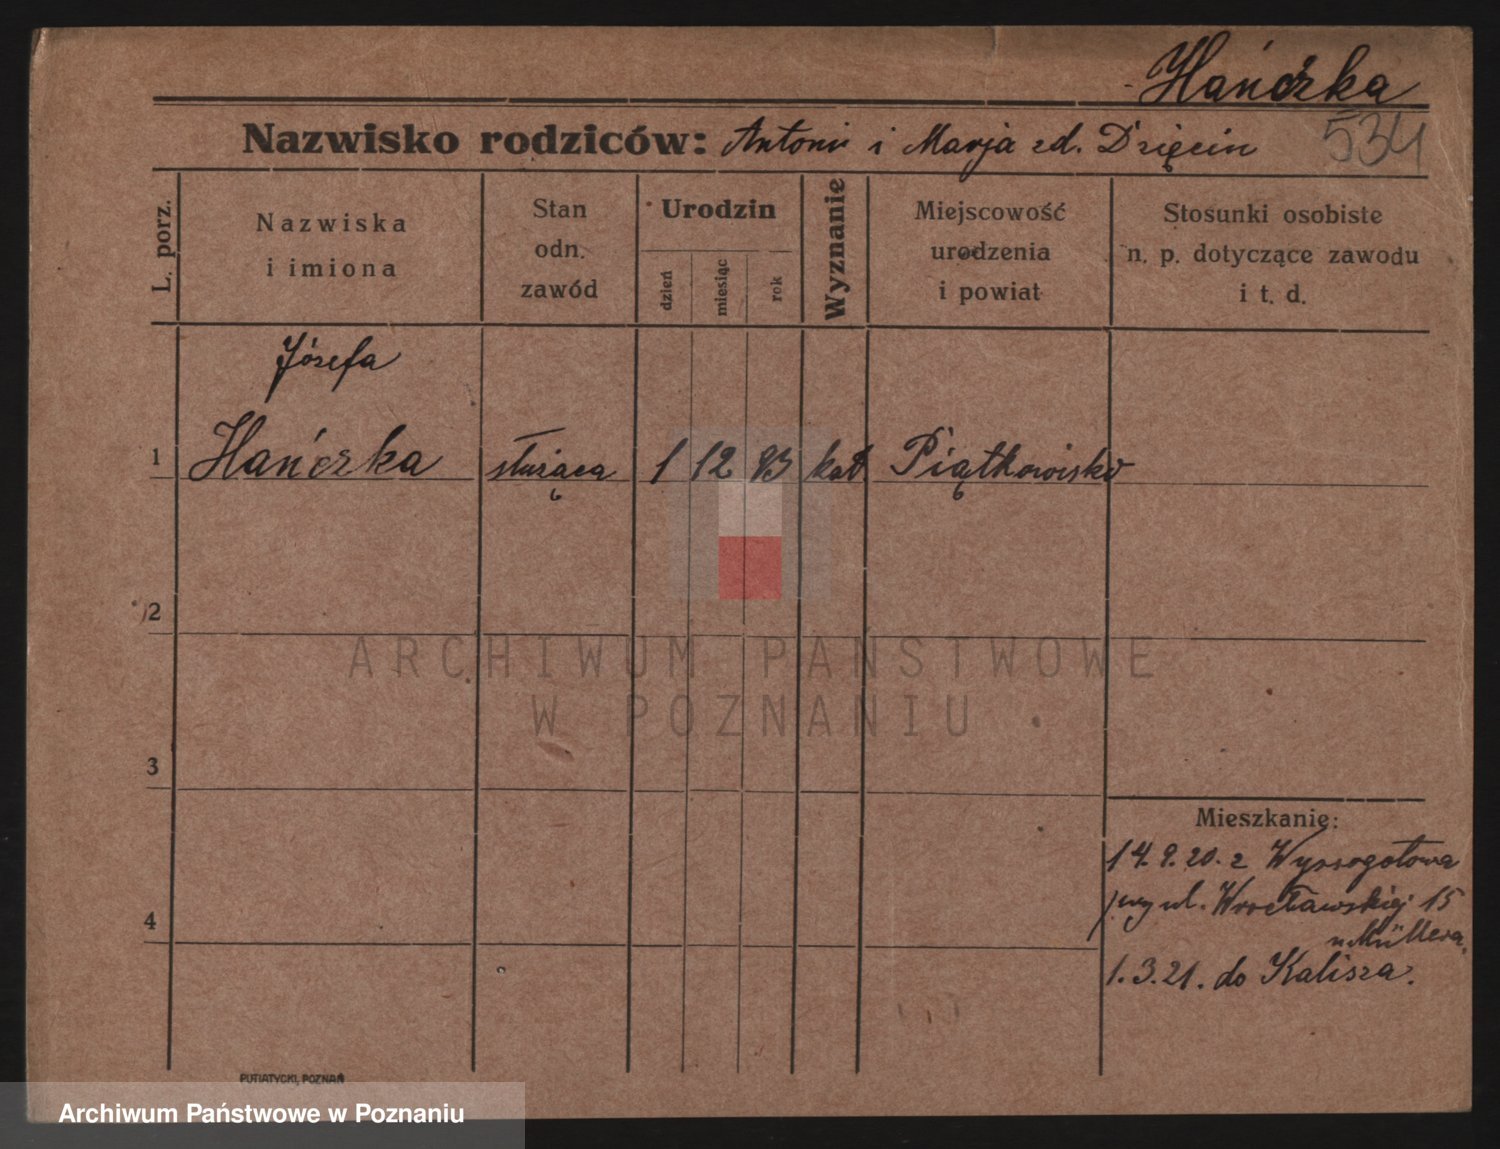 Hańczka
Nazwisko rodziców: Antoni i Marja zd. Dzięcin
534
L. porz.
Nazwiska
i imiona
Stan
odn.
zawód
Urodzin
dzień
miesiąc
rok
Wyznanie
Miejscowość
urodzenia
i powiat
Stosunki osobiste
n. p. dotyczące zawodu
i t. d.
Józefa
1 Hańczka służąca 1 12 93 kat. Piątkowisko
2
ARCHIWUM PAŃSTWOWE
W POZNANIU
3
Mieszkanie:
14.9.20. z Wyssogotowa
przy ul. Wrocławskiej 15
u Müllera.
4
1.3.21. do Kalisza.
PUTIATYCKI, POZNAŃ
Archiwum Państwowe w Poznaniu